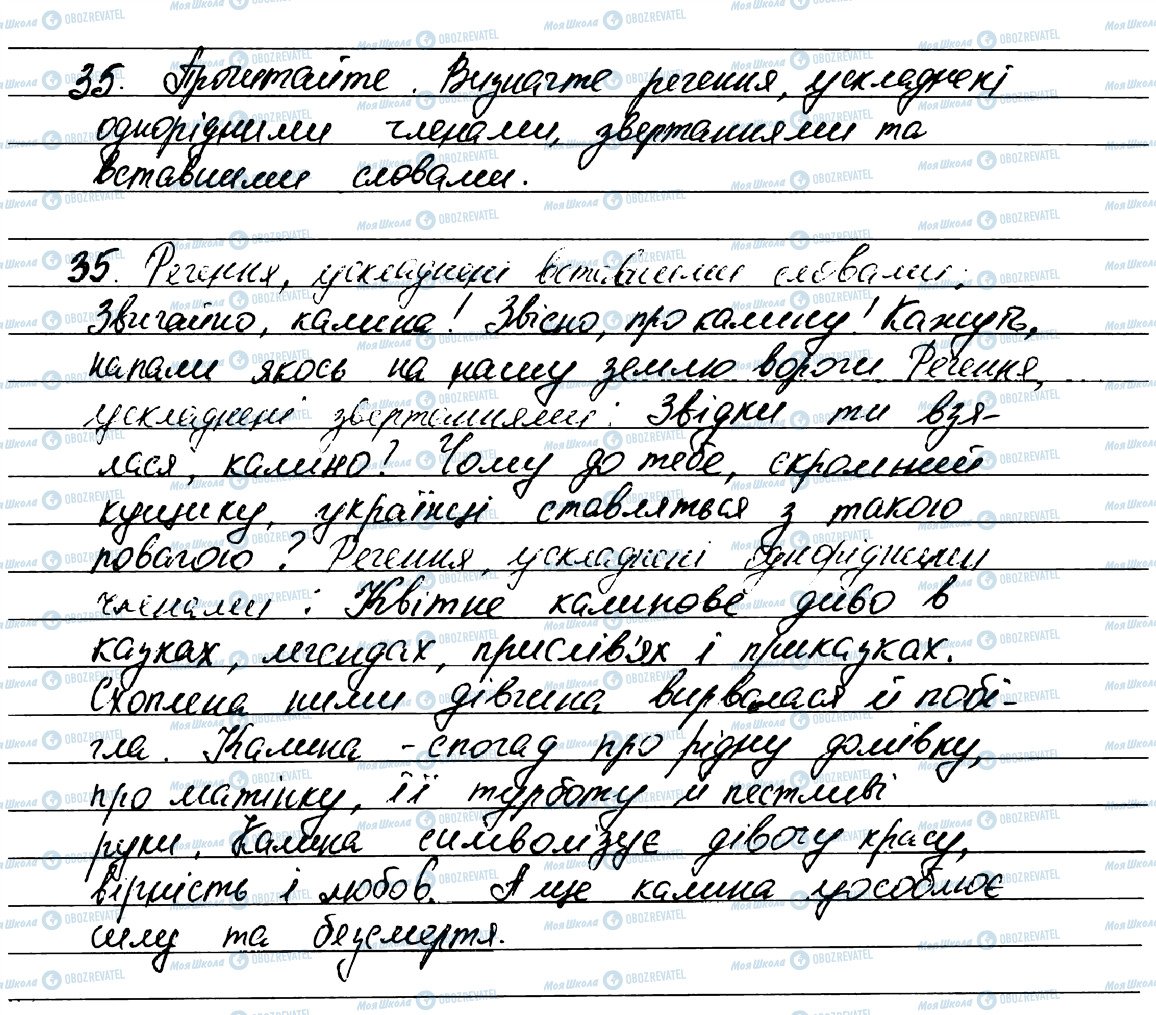 35. Прочитайте. Визначте речення, ускладнені
однорідними членами, звертаннями та
вставними словами.
35. Речення, ускладнені вставними словами:
Звичайно, калина! Звісно, про калину! Кажуть,
напали якось на нашу землю вороги Речення,
ускладнені звертаннями: Звідки ти взя-
лася, калино? Чому до тебе, скромний
кущику, українці ставляться з такою
повагою? Речення, ускладнені однорідними
членами: Квітне калинове диво в
казках, легендах, прислів'ях і приказках.
Схоплена ними дівчина вирвалася й побі-
гла. Калина - спогад про рідну домівку,
про матінку, її турботу й пестливі
руки. Калина символізує дівочу красу,
вірність і любов. А ще калина уособлює
силу та безсмертя.